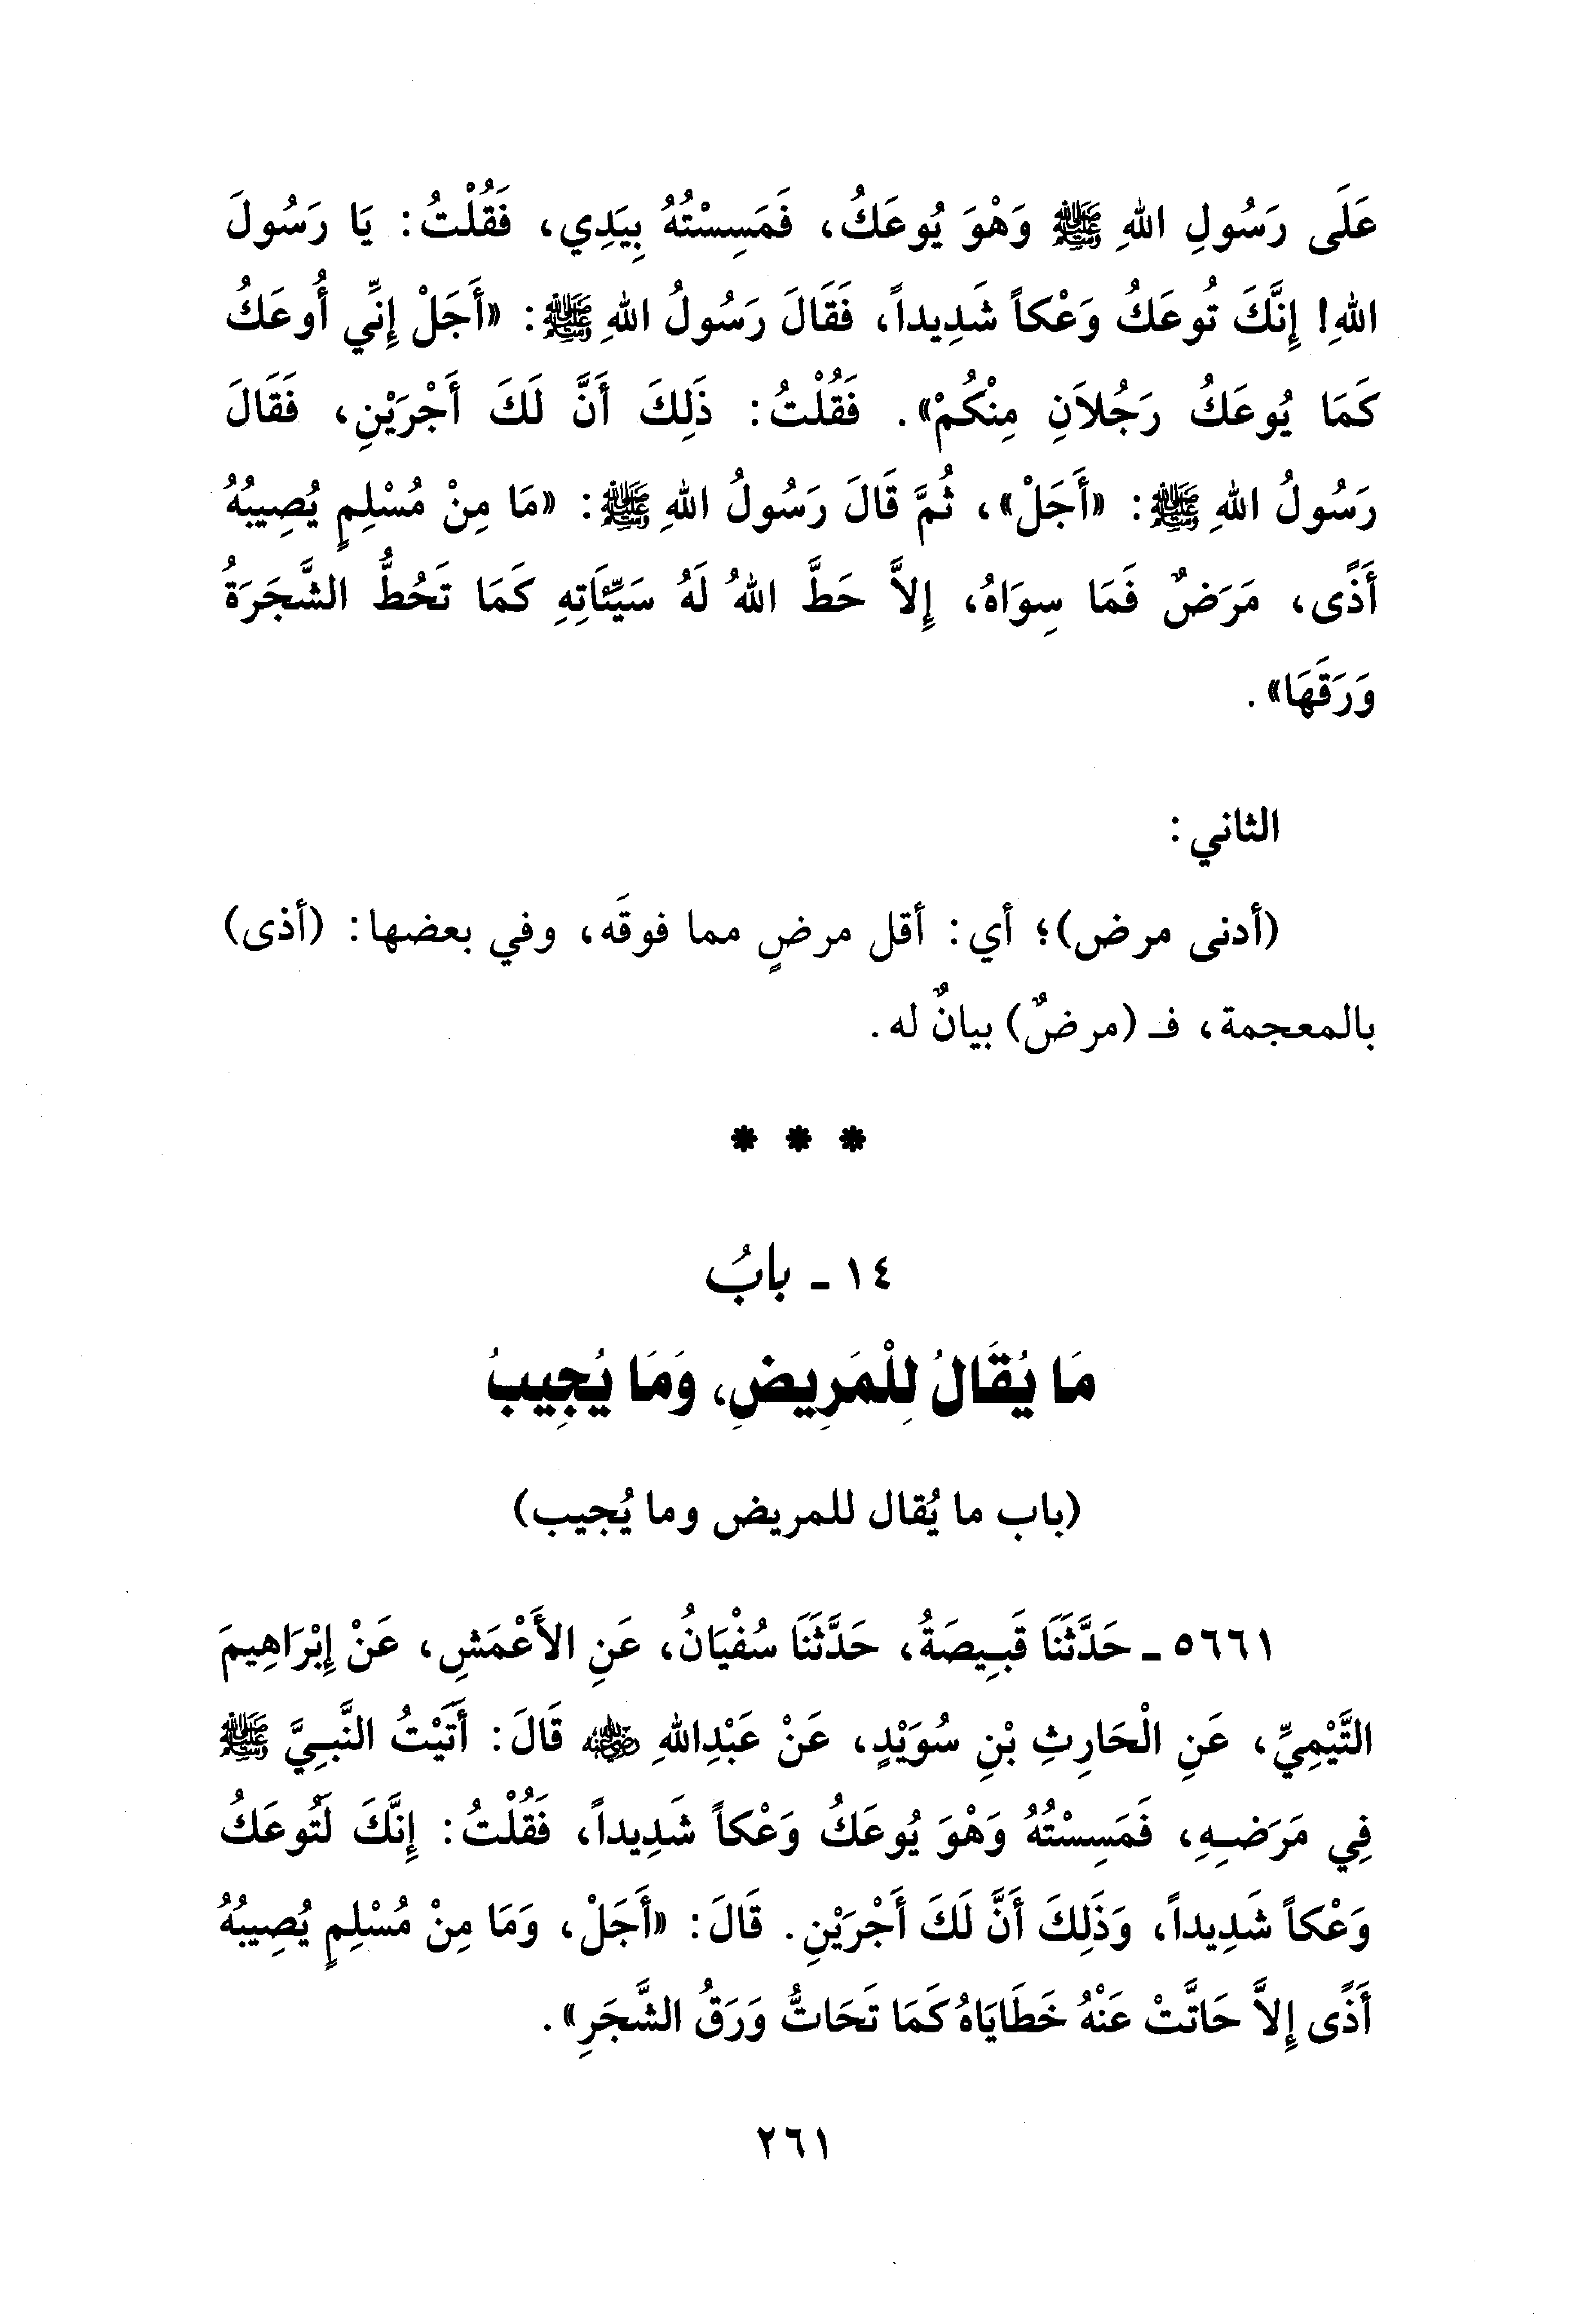 عَلَى رَسُولِ اللهِ ﷺ وَهْوَ يُوعَكُ، فَمَسِسْتُهُ بِيَدِي، فَقُلْتُ: يَا رَسُولَ
اللهِ! إِنَّكَ تُوعَكُ وَعْكاً شَدِيداً، فَقَالَ رَسُولُ اللهِ ﷺ: «أَجَلْ إِنِّي أُوعَكُ
كَمَا يُوعَكُ رَجُلاَنِ مِنْكُمْ». فَقُلْتُ: ذَلِكَ أَنَّ لَكَ أَجْرَيْنِ، فَقَالَ
رَسُولُ اللهِ ﷺ: «أَجَلْ»، ثُمَّ قَالَ رَسُولُ اللهِ ﷺ: «مَا مِنْ مُسْلِمٍ يُصِيبُهُ
أَذًى، مَرَضٌ فَمَا سِوَاهُ، إِلاَّ حَطَّ اللهُ لَهُ سَيِّئَاتِهِ كَمَا تَحُطُّ الشَّجَرَةُ
وَرَقَهَا».
الثاني:
(أدنى مرض)؛ أي: أقل مرضٍ مما فوقَه، وفي بعضها: (أذى)
بالمعجمة، فـ (مرضٌ) بيانٌ له.
* * *
١٤ - بابُ
مَا يُقَالُ لِلْمَرِيضِ، وَمَا يُجِيبُ
(باب ما يُقال للمريض وما يُجيب)
٥٦٦١ - حَدَّثَنَا قَبِيصَةُ، حَدَّثَنَا سُفْيَانُ، عَنِ الأَعْمَشِ، عَنْ إِبْرَاهِيمَ
التَّيْمِيِّ، عَنِ الْحَارِثِ بْنِ سُوَيْدٍ، عَنْ عَبْدِاللهِ رضي الله عنه قَالَ: أَتَيْتُ النَّبِيَّ ﷺ
فِي مَرَضِهِ، فَمَسِسْتُهُ وَهْوَ يُوعَكُ وَعْكاً شَدِيداً، فَقُلْتُ: إِنَّكَ لَتُوعَكُ
وَعْكاً شَدِيداً، وَذَلِكَ أَنَّ لَكَ أَجْرَيْنِ. قَالَ: «أَجَلْ، وَمَا مِنْ مُسْلِمٍ يُصِيبُهُ
أَذًى إِلاَّ حَاتَّتْ عَنْهُ خَطَايَاهُ كَمَا تَحَاتُّ وَرَقُ الشَّجَرِ».
٢٦١